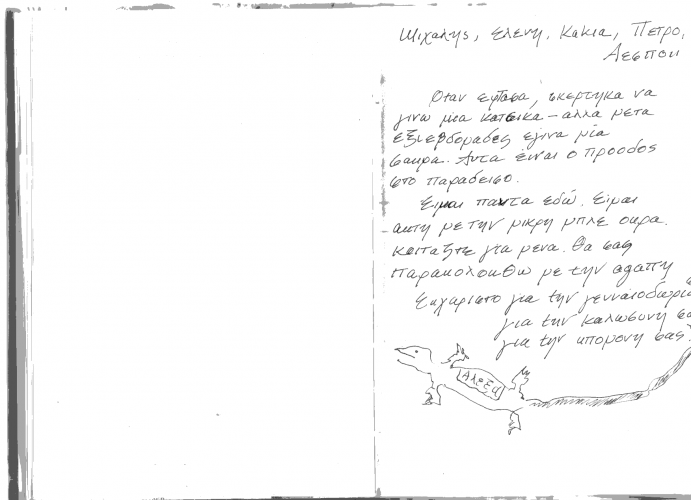 Μιχαλης, Ελενη, Κακια, Πετρο,
Δεσποι
Οταν εφτασα, σκερτηκα να
γινω μια κατσικα – αλλα μετα
εξι εβδομαδες εγινα μία
σαυρα. Αυτα είναι ο προοδος
στο παραδεισο.
Ειμαι παντα εδώ. Είμαι
αυτη με την μικρη μπλε ουρα.
Κοιταξτε για μενα. Θα σας
παρακολουθω με την αγαπη
Ευχαριστο για την γενναιοδωρία
για την καλωσυνη σα
για την υπομονη σας.
Αλεξη